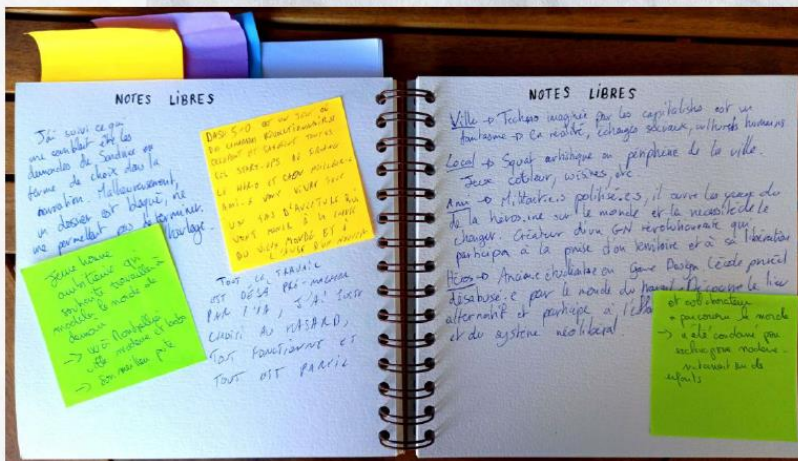 NOTES LIBRES
J'ai suivi ce qui
me semblait être les
demandes de Sandrine en
terme de choix dans la
narration. Malheureusement,
un dossier est bloqué, ne
me permettant pas de terminer
DASE 5-0 EST UN JEU OÙ
EN LIMARDS RÉVOLUTIONNAIRES
LES START-UPS DU
LE HÉRO ET
AMI·E VONT VIVRE
UN D'AVENTURE QUI
VONT MENER À LA CHUTE
DU VIEUX MONDE ET À
D'UN NOUVEAU
Jeune homme
ambitieux qui
souhaite travailler à
modeler le monde de
demain
→ Montpellier
ville moderne et
→ Son meilleur pote
TOUT CE TRAVAIL
EST DÉJÀ PRÉ-MACHÉ
PAR L'IA, J'AI JUSTE
CHOISI AU HASARD,
TOUT FONCTIONNE ET
TOUT EST PARTIE
NOTES LIBRES
Ville → Techno imaginée par les capitalistes est un
fantasme → En réalité, échanges sociaux, culturels humains.
Local → Squat artistique en périphérie de la ville.
Jeux etc
Ami → Militant.e.s politisé.e.s, il ouvre les yeux du
de la héros.ïne sur le monde et la nécessité de le
changer. Créateur d'un GN révolutionnaire qui
participa à la prise d'un territoire et à sa libération
Héros → Ancien.e étudiant.e en Game Design (école privée)
désabusé.e par le monde du travail. Découvre le lieu
alternatif et participe à
et du système néolibéral.
et collaborateur
a parcouru le monde
→ a été condamné pour
enfants